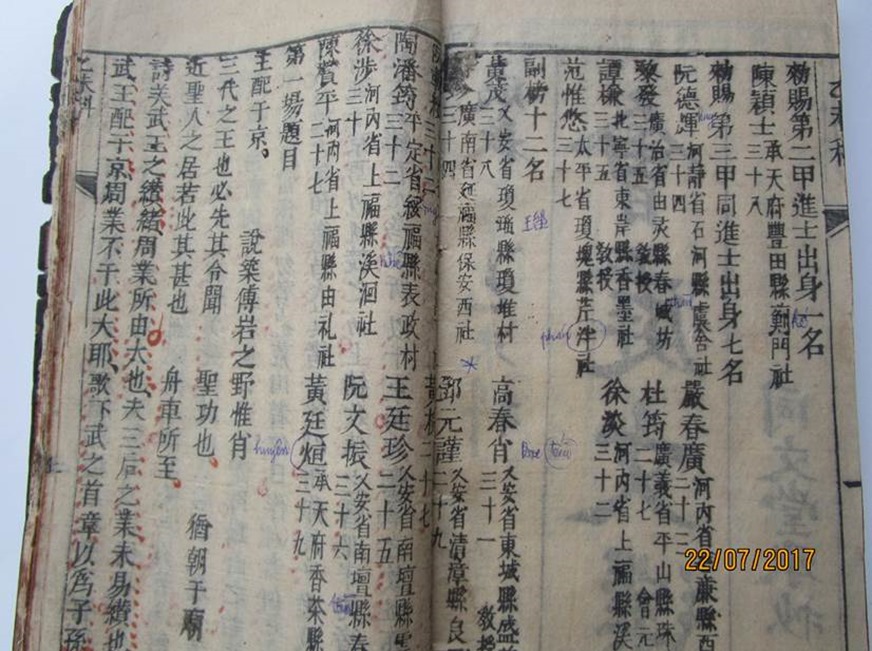 乙未科
勅賜第二甲進士出身一名
陳穎士 三十八 承天府豐田縣鄭門社
勅賜第三甲同進士出身七名
阮德輝 三十四 河靜省石河縣處舍社
嚴春廣 二十二 河內省 廉縣西
黎發 三十五 廣治省由灵縣春城坊 教授
杜筠 二十七 廣義省平山縣珠 會元
譚 三十五 北寧省東岸縣香墨社 教授
徐淡 三十二 河內省上福縣溪
范惟悠 三十七 太平省瓊瑰縣芹泮社
副榜十二名
黃茂 三十八 乂安省瓊瑤縣瓊堆村
高春肖 三十一 乂安省東城縣盛 教授
三十四 廣南省延福縣保安西社
鄧元謹 二十九 乂安省清漳縣良
三十二
黃 二十七
陶潘筠 三十二 平定省綏福縣表政村
王廷珍 二十五 乂安省南壇縣
徐涉 三十 河內省上福縣溪洄社
阮文振 三十六 乂安省南壇縣春
陳贊平 二十七 河內省上福縣由礼社
黃廷烜 三十九 承天府香茶縣
第一場題目
王配于京。 說築傅岩之野惟肖
三代之王也必先其令聞 聖功也
近聖人之居若此其甚也 舟車所至 循朝于廟
詩美武王之纘緒周業所由大也、夫三后之業未易纘也
武王配于京周業不于此大耶、歌下武之首章以為子孫
乙未科
22/07/2017